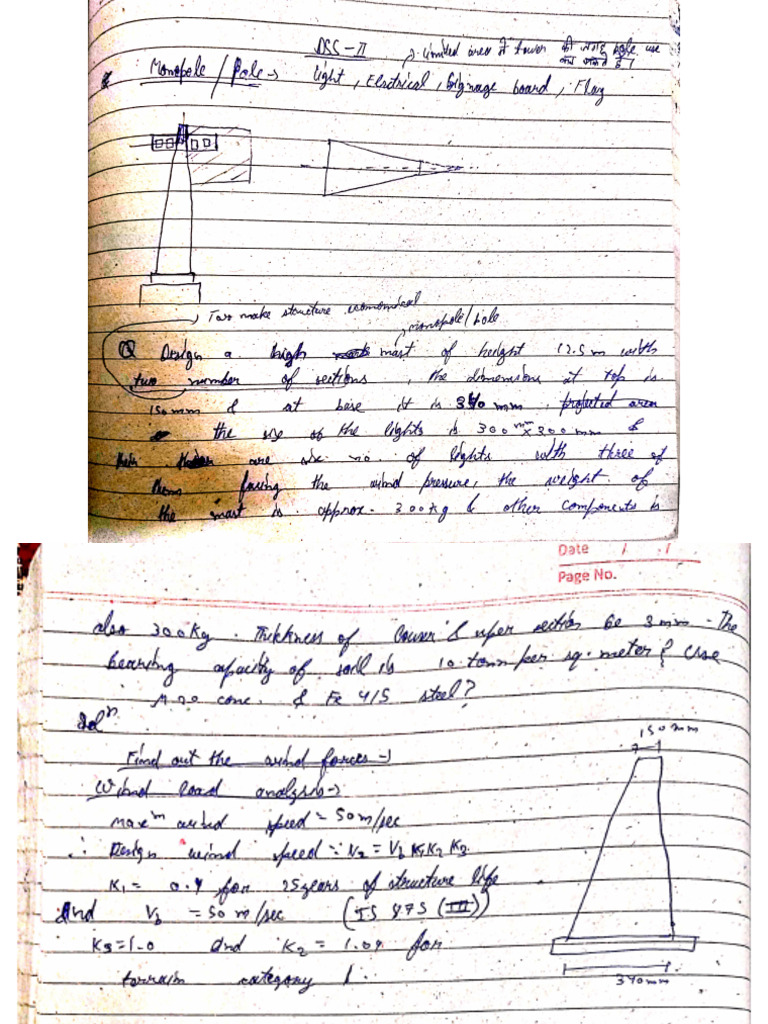 DSS-II
Limited area में tower की जगह pole use
कर सकते हैं।
Monopole / Pole → Light, Electrical, Signage board, Flag
Two make structure economical
monopole/pole
Q Design a high mast of height 12.5m with
two number of sections, the dimensions at top is
150mm & at base it is 340 mm, projected area
the size of the lights is 300mm x 300mm &
are six no. of lights with three of
them facing the wind pressure, the weight of
the mast is approx. 300kg & other components is
Date / /
Page No.
also 300kg. Thickness of lower & uper section be 3mm. The
bearing capacity of soil is 10 tonn per sq. meter & use
M20 conc. & Fe 415 steel?
Solⁿ
Find out the wind forces →
Wind load analysis →
Maxᵐ wind speed = 50m/sec
∴ Design wind speed = Vz = Vb K1 K2 K3
K1 = 0.9 for 25 years of structure life
And Vb = 50 m/sec (IS 875 (III))
K3=1.0 and K2 = 1.09 for
terrain category 1.
150mm
340mm